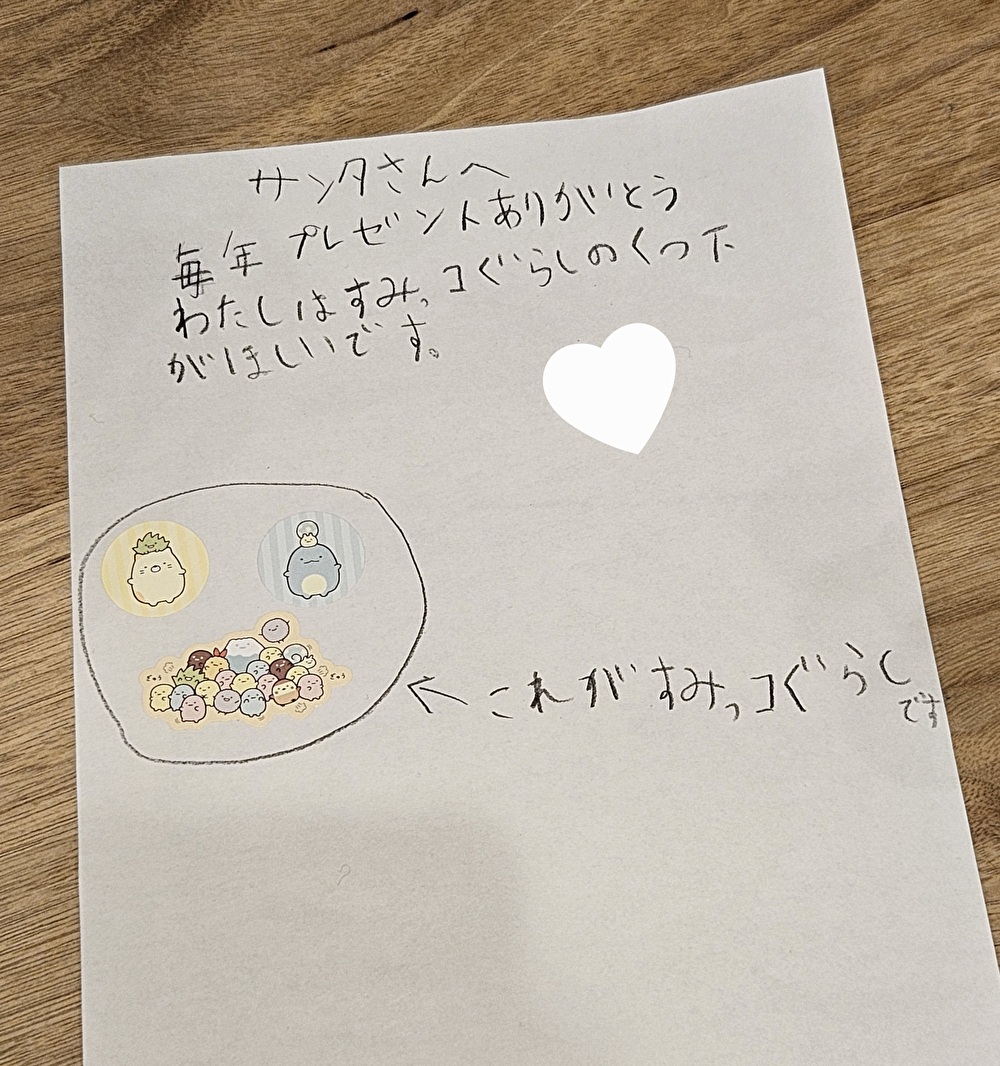 サンタさんへ
毎年プレゼントありがとう
わたしはすみっコぐらしのくつ下
がほしいです。
ぎゅう ぎゅう
←これがすみっコぐらし
です